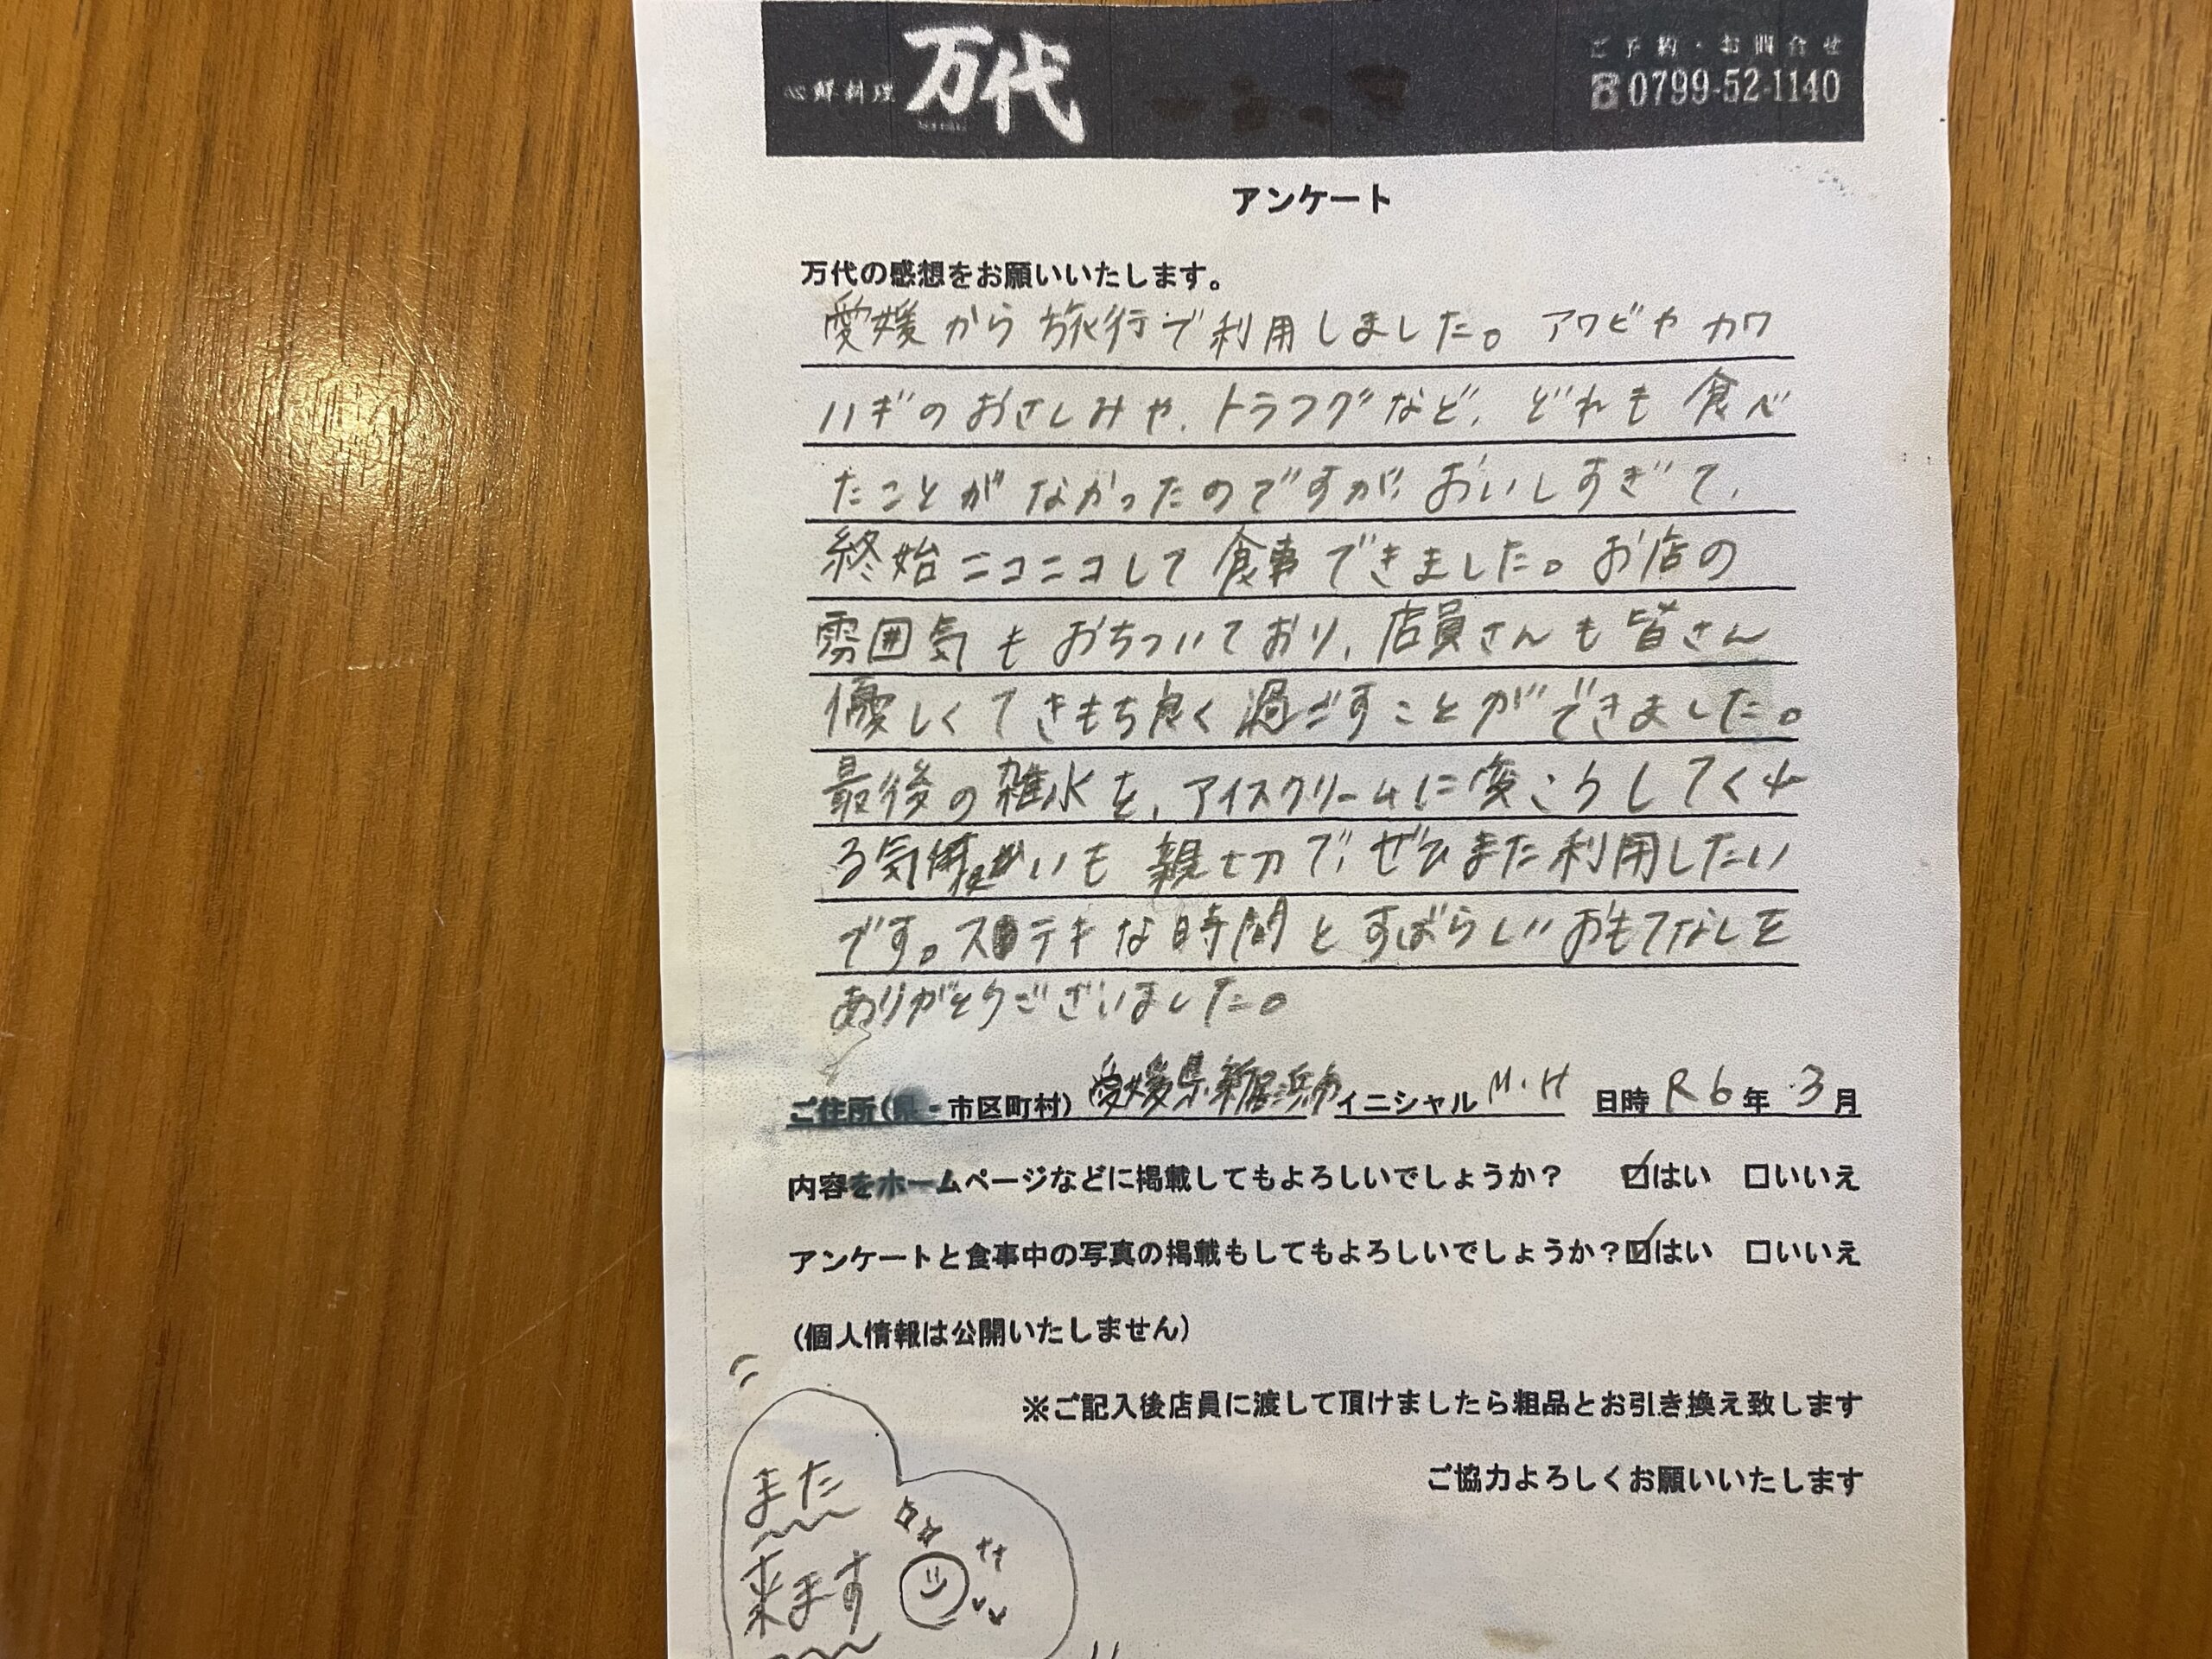 心鮮料理 万代
ご予約・お問合せ
☎0799-52-1140
アンケート
万代の感想をお願いいたします。
愛媛から旅行で利用しました。アワビやカワ
ハギのおさしみや、トラフグなど、どれも食べ
たことがなかったのですが、おいしすぎて、
終始ニコニコして食事できました。お店の
雰囲気もおちついており、店員さんも皆さん
優しくてきもち良く過ごすことができました。
最後の雑水を、アイスクリームに変こうしてく
る気いも親切で、ぜひまた利用したい
です。ステキな時間とすばらしいおもてなしを
ありがとうございました。
ご住所(県・市区町村) 愛媛県新居浜市 イニシャル M・H 日時 R6年 3月
内容をホームページなどに掲載してもよろしいでしょうか? ☑はい □いいえ
アンケートと食事中の写真の掲載もしてもよろしいでしょうか?☑はい □いいえ
(個人情報は公開いたしません)
※ご記入後店員に渡して頂けましたら粗品とお引き換え致します
ご協力よろしくお願いいたします
また
来ます